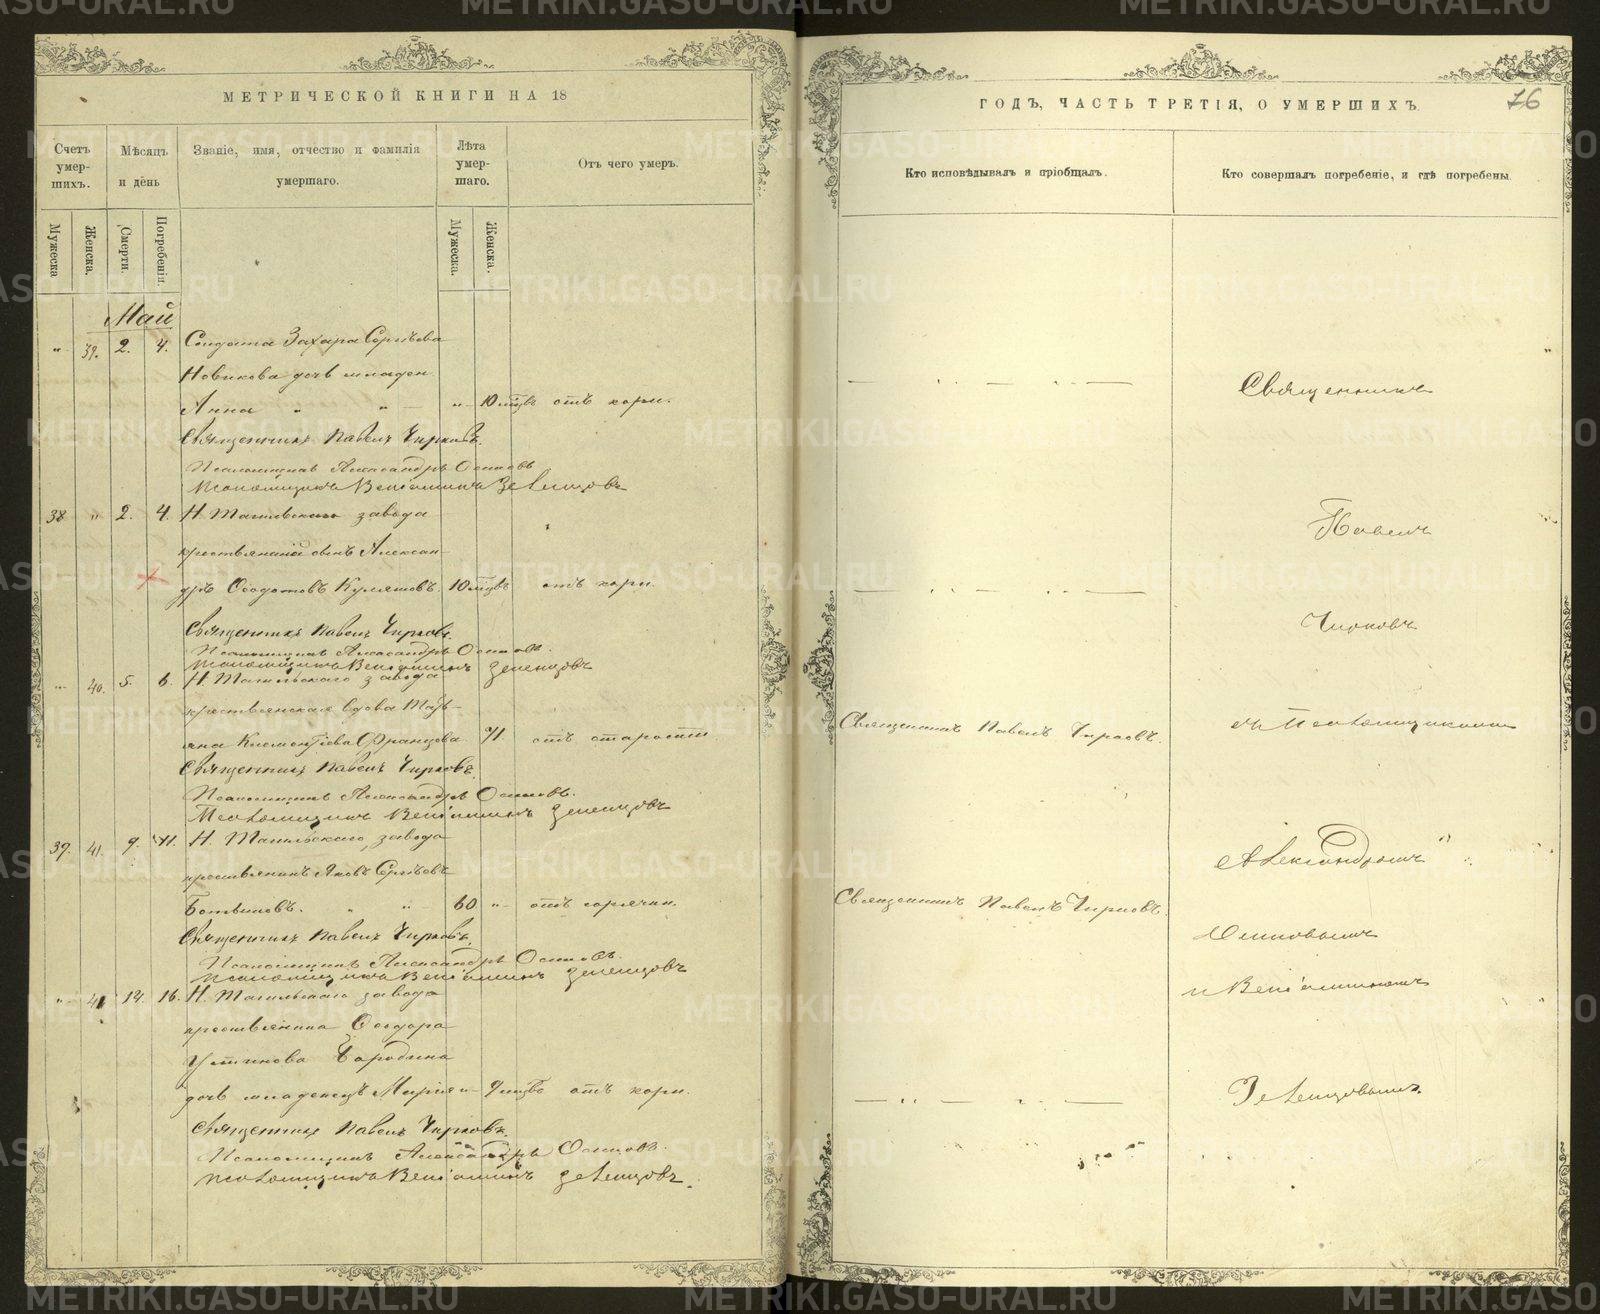 МЕТРИЧЕСКОЙ КНИГИ НА 18
Счетъ умер-шихъ.
Мѣсяцъ и день
Званіе, имя, отчество и фамилія умершаго.
Лѣта умер-шаго.
Отъ чего умеръ.
Мужеска
Женска.
Смерти.
Погребенія
Мужеска.
Женска.
Май
" 39. 2. 4. Солдата Захара Сергѣева
Новикова дочь младен.
Анна " " " 10 мцвъ отъ кори.
Священникъ Павелъ Чирковъ.
Псаломщикъ Александръ Осиповъ
Псаломщикъ Веніаминъ Зеленцовъ
38 " 2. 4. Н. Тагильскаго завода
крестьянина сынъ Алексан-
дръ Ѳедотовъ Кулешовъ. 10 мцвъ отъ кори.
Священникъ Павелъ Чирковъ.
Псаломщикъ Александръ Осиповъ.
Псаломщикъ Веніаминъ Зеленцовъ
" 40. 5. 6. Н. Тагильскаго завода
крестьянская вдова Тать-
яна Климентіева 71. отъ старости
Священникъ Павелъ Чирковъ.
Псаломщикъ Александръ Осиповъ.
Псаломщикъ Веніаминъ Зеленцовъ
39. 41. 9. 11. Н. Тагильскаго завода
крестьянинъ Яковъ Сергѣевъ
Ботвиновъ. " " 60 " отъ горячки.
Священникъ Павелъ Чирковъ.
Псаломщикъ Александръ Осиповъ.
Псаломщикъ Веніаминъ Зеленцовъ
" 41 14. 16. Н. Тагильскаго завода
крестьянина Ѳедора
Устинова
дочь младенецъ Марія " 9 мцвъ отъ кори.
Священникъ Павелъ Чирковъ.
Псаломщикъ Александръ Осиповъ.
Псаломщикъ Веніаминъ Зеленцовъ.
ГОДЪ, ЧАСТЬ ТРЕТІЯ, О УМЕРШИХЪ
76
Кто исповѣдывалъ и пріобщалъ.
Кто совершалъ погребеніе, и гдѣ погребены.
Священникъ
Павелъ
Чирковъ
Священникъ Павелъ Чирковъ.
съ Псаломщиками
Александромъ
Священникъ Павелъ Чирковъ.
Осиповымъ
и Веніаминомъ
Зеленцовымъ.
METRIKI.GASO-URAL.RU